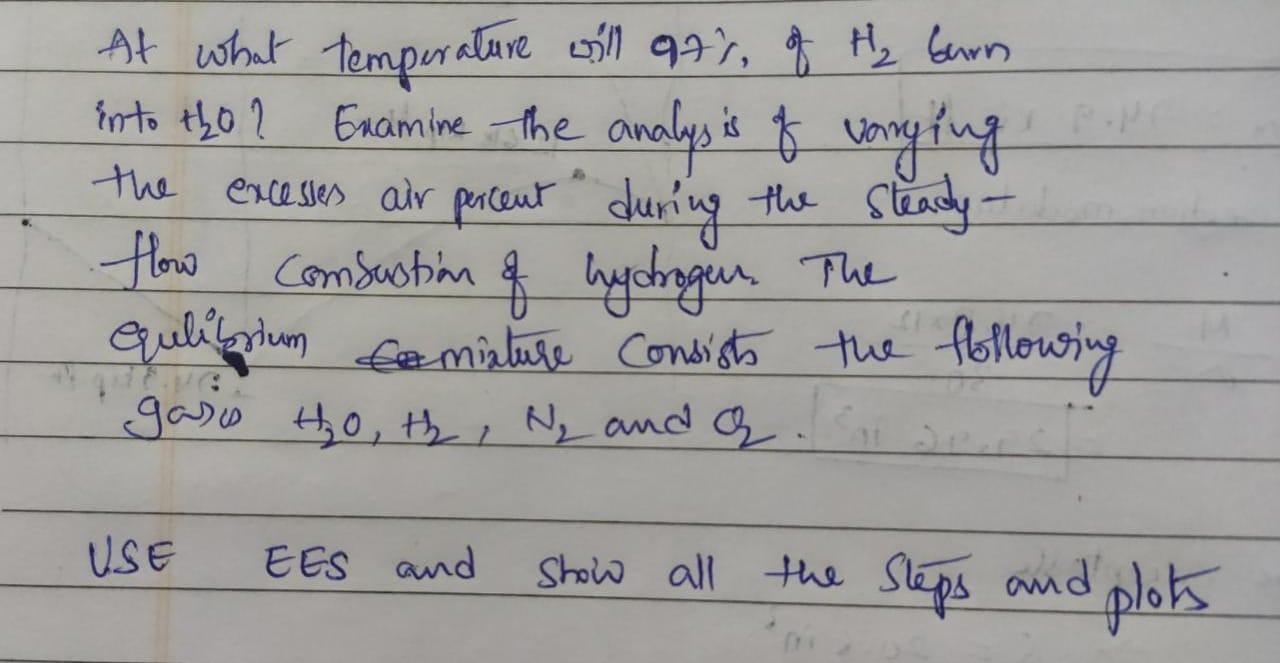 At what temperature will 97%. of H2 burn
into H2O? Examine the analysis of varying
the excesses air percent during the Steady-
flow Combustion of hydrogen. The
equlibrium mixture Consists the following
gases H2O, H2, N2 and O2.
USE EES and Show all the Steps and plots